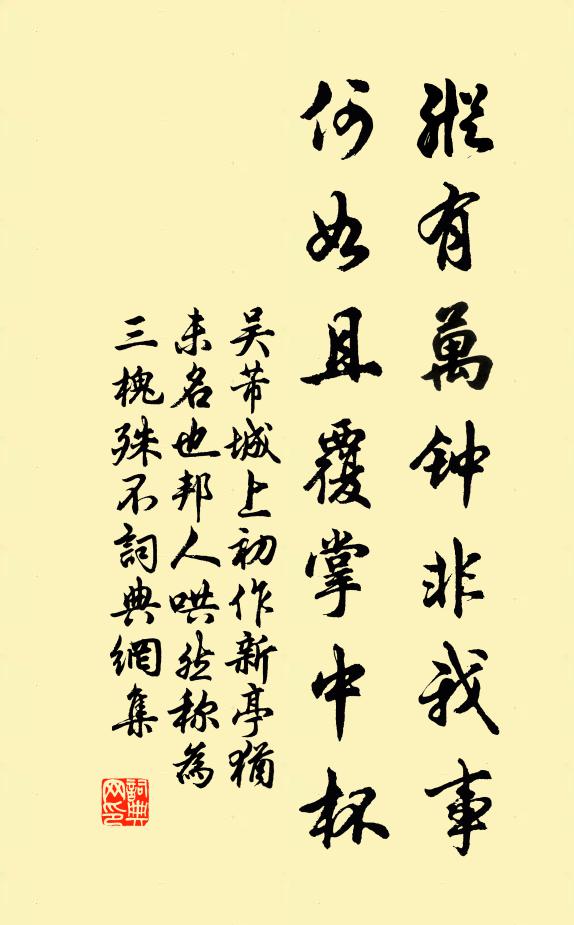 縱有萬钟非我事
何如且覆掌中杯
吴芾城上初作新亭猶
未名也邦人哄然称為
三槐殊不詞典網集
詞典
网印